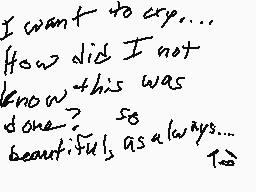 I want to cry....
How did I not
know this was
done? so
beautiful, as always...